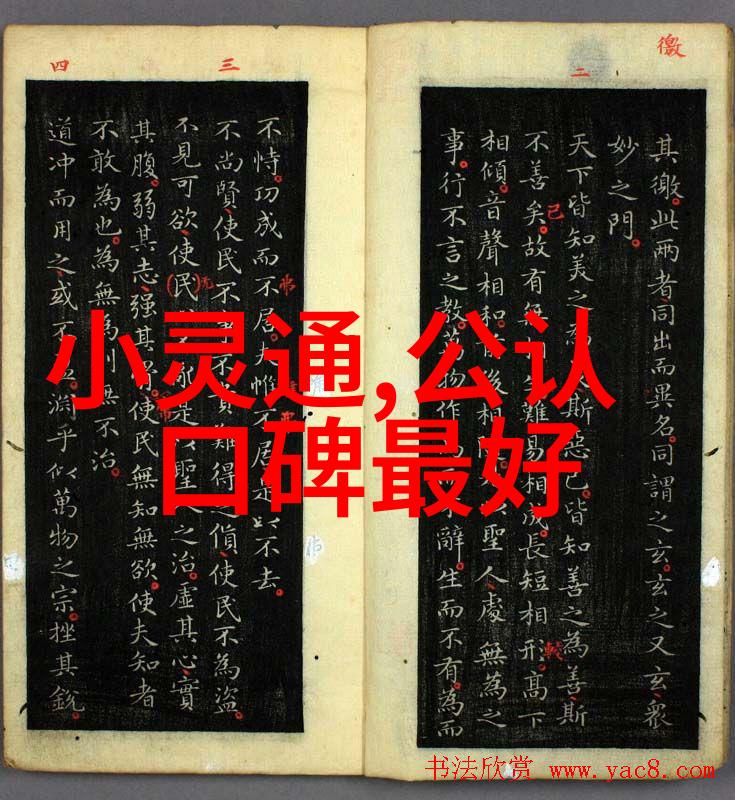 徼
二
其徼此两者同出而異名同謂之玄玄之又玄眾
妙之門
天下皆知美之為斯惡已皆知善之為善斯
已
不善矣故有無難易相成長短相形高下
較
相傾音聲相和後相聖人處無為之
事行不言之教萬物作辭生而不有為而
三
四
不恃功成而不居夫惟不居是以不去
弗
不尚賢使民不不貴難得之貨使民不為盜
无
不見可欲使民是以聖人之治虛其心實
其腹弱其志强其骨使民無知無欲使夫知者
不敢為也為無為則無不治
道冲而用之或不盈渊乎似萬物之宗挫其銳
小灵通,公认
口碑最好
书法欣赏 www.yac8.com